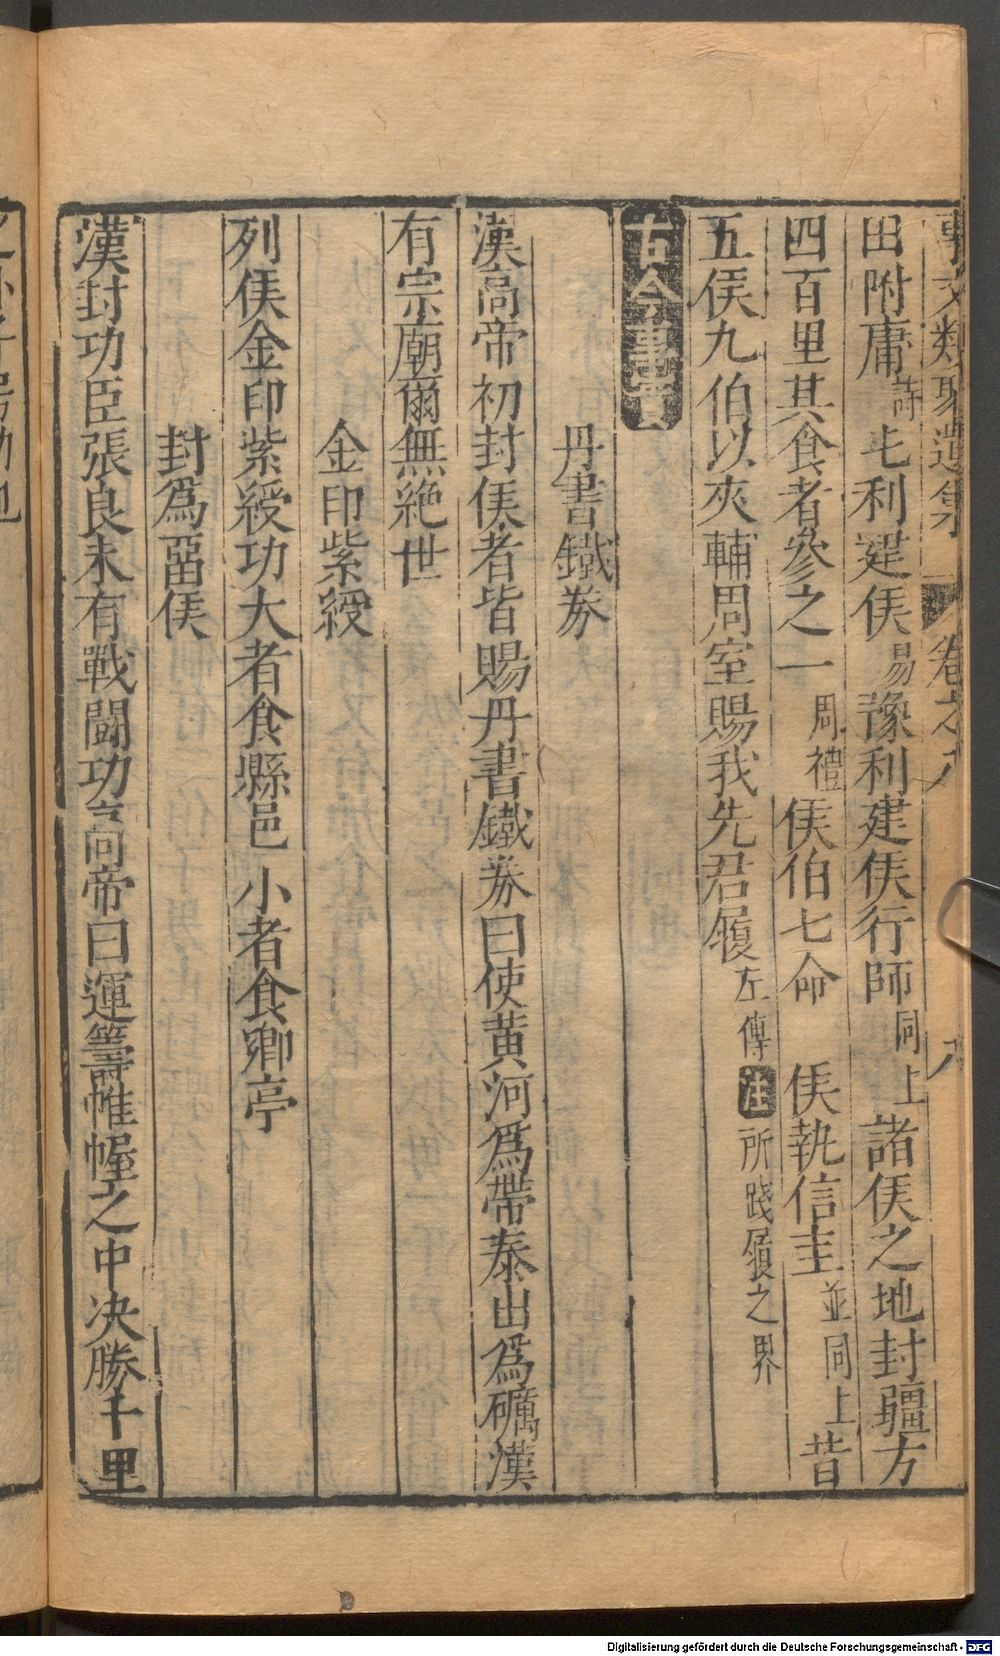 事文類聚遺集 卷之八 八
田附庸詩毛利建侯易豫利建侯行師同上諸侯之地封疆方
四百里其食者參之一周禮侯伯七命 侯執信圭並同上昔
五侯九伯以夾輔周室賜我先君履左傳注所踐履之界
古今事實
丹書鐵券
漢高帝初封侯者皆賜丹書鐵券曰使黃河為帶泰山為礪漢
有宗廟爾無絶世
金印紫綬
列侯金印紫綬功大者食縣邑小者食鄉亭
封為畱侯
漢封功臣張良未有戰鬬功高帝曰運籌帷幄之中决勝千里
Digitalisierung gefördert durch die Deutsche Forschungsgemeinschaft - DFG